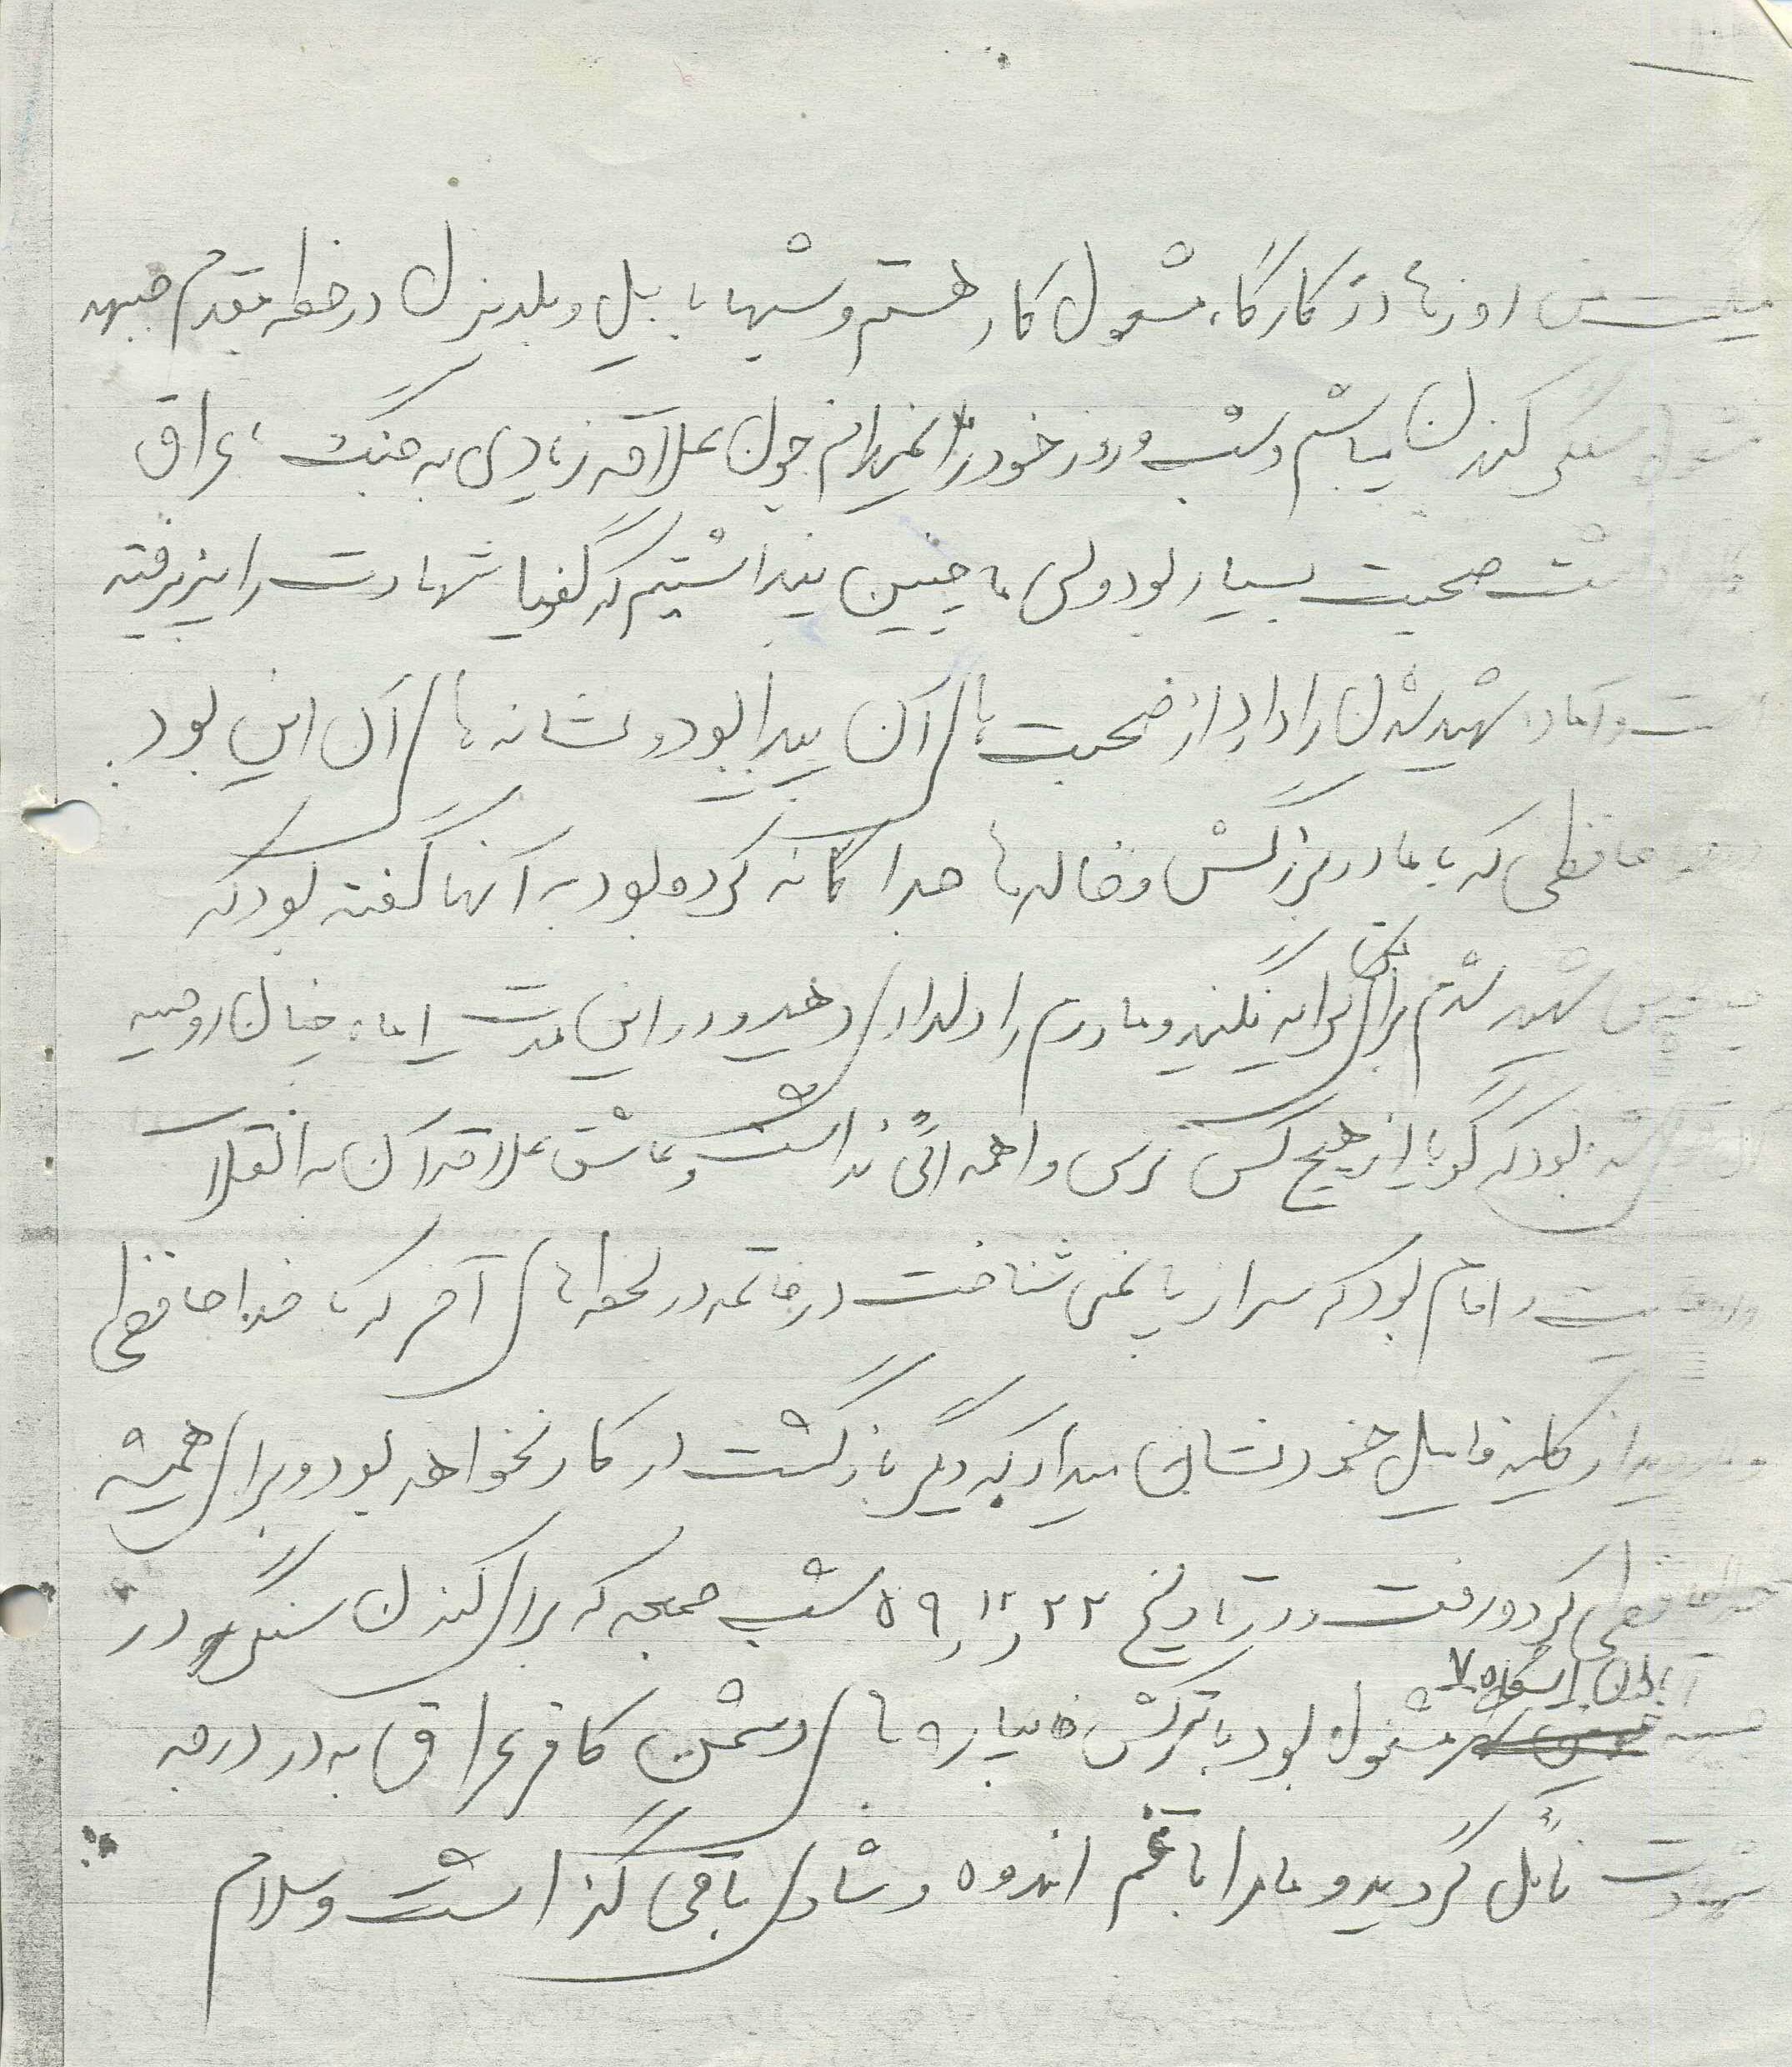 میگفت من روزها در کارگاه مشغول کار هستم و شبها با بیل و بلدیزل در خطه مقدم جبهه
مشغول سنگر کندن میباشم و شب و روز خود را نمیدانم چون علاقه زیادی به جنگ عراق
داشت صحبت بسیار بود ولی ما چنین پنداشتیم که گفویا شهادت را پذیرفته
است و آماده شهید شدن را دارد از صحبت های آن پیدا بود و نشانه های آن این بود
خداحافظی که با مادربزرگش و خاله ها جدا گانه کرده بود به آنها گفته بود که
من شهید شدم برای من گرایه نکنید و مادرم را دلداری دهید و در این مدت ماه چنان روحیه
بود که گویا از هیچ کس ترس و اهمه ائی نداشت و عاشق علاقه آن به انقلاب
و امام بود که سر از پا نمی شناخت در خاتمه در لحظه های آخر که با خدا حافظی
از کلیه فامیل خود نشان میداد که دیگر بازگشت در کار نخواهد بود و برای همیشه
خداحافظی کرد و رفت و در تاریخ ۵۹٫۱۲٫۲۲ شب جمعه که برای کندن سنگر در
آبادان ایستگاه ۷
مشغول بود با ترکش خمپاره های دشمن کافر عراق به در درجه
شهادت نائل گردید و مارا با غم اندوه و شادی باقی گذاشت وسلام